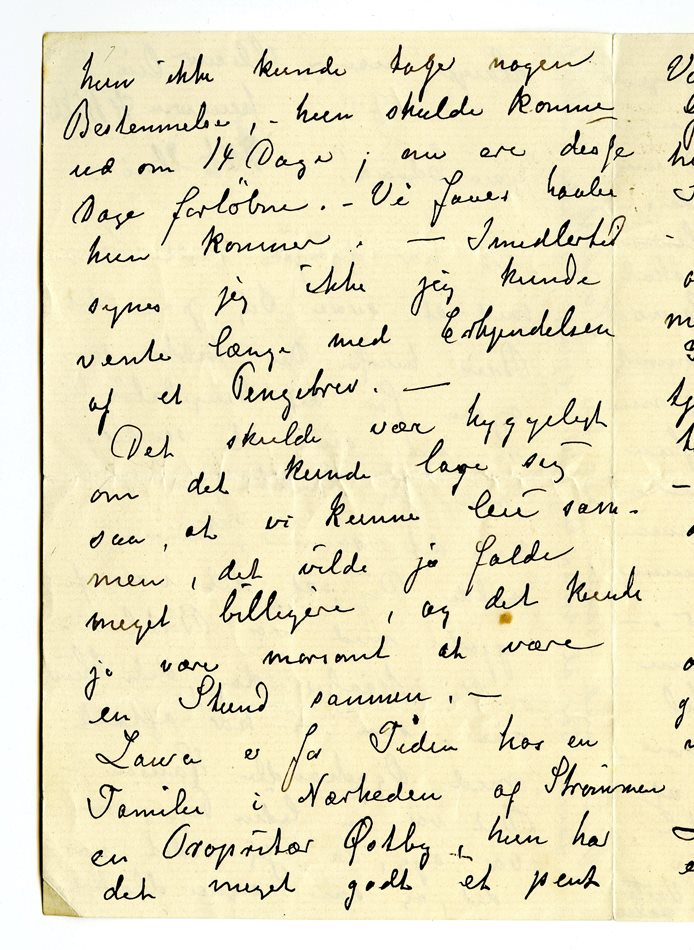 hun ikke kunde tage nogen
Bestemmelse, - hun skulde komme
ud om 14 Dage; nu ere disse
Dage forløbne. - Vi faaer haabe
hun kommer. — Imidlertid
synes jeg ikke jeg kunde
vente længe med Erkjendelsen
af et Pengebrev. —
Det skulde vær hyggeligt
om det kunde lage sig
saa, at vi kunne leie sam-
men, det vilde jo falde
meget billigere, og det kunde
jo være morsomt at være
en Stund sammen. —
Laura er for Tiden hos en
Familie i Nærheden af Strømmen
en Propritær Østby, hun har
det meget godt et pent